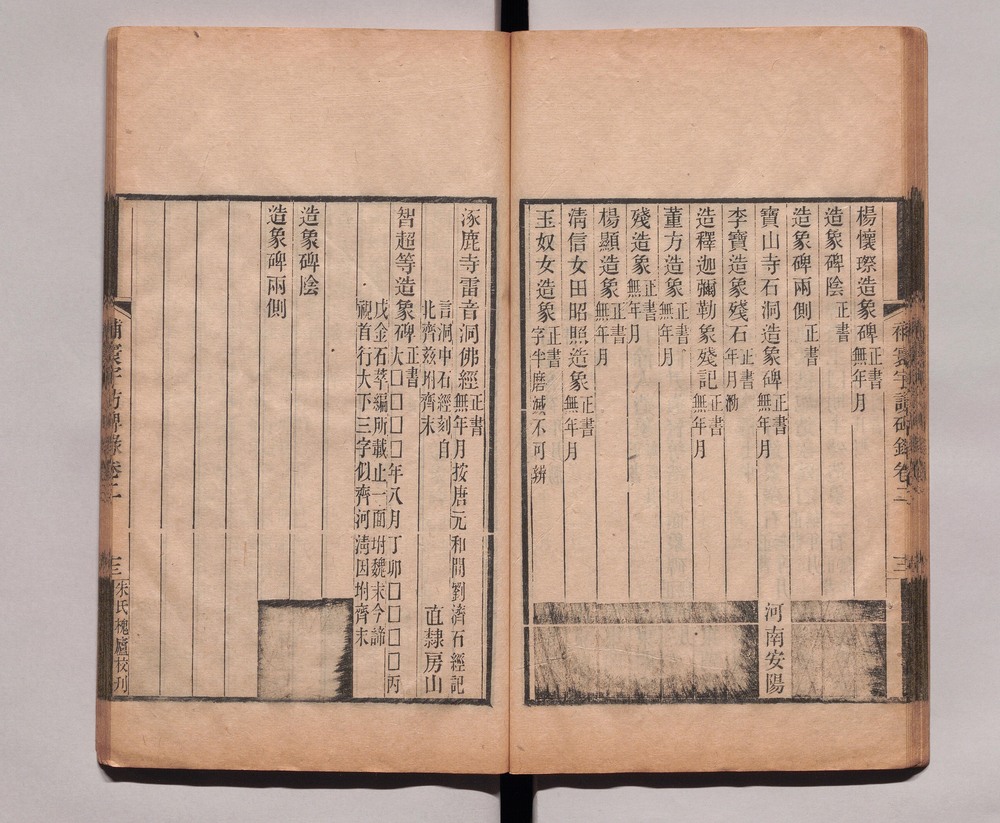 楊懷瑹造象碑 正書 無年月
造象碑陰 正書
造象碑兩側 正書
寶山寺石洞造象碑 正書 無年月 河南安陽
李寶造象殘石 正書 年月泐
造釋迦彌勒象殘記 正書 無年月
董方造象 正書 無年月
殘造象 正書 無年月
楊顯造象 正書 無年月
清信女田昭照造象 正書 無年月
玉奴女造象 正書 字半磨滅不可辨
補寰宇訪碑錄卷二 三
涿鹿寺雷音洞佛經 正書 無年月按唐元和間劉濟石經記
言洞中石經刻自
北齊茲坿齊末 直隸房山
智超等造象碑 正書 大□□□□年八月丁卯□□□□丙
戊金石萃編所載止一面坿魏末今諦
視首行大下三字似齊河清因坿齊末
造象碑陰
造象碑兩側
補寰宇訪碑錄卷二 三 朱氏槐廬校刊